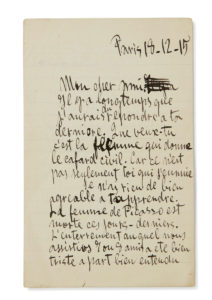 Paris 18-12-15
Mon cher ami
Il y a longtemps que
j'aurais du répondre à ta
dernière. Que veux-tu
c'est la flemme qui donne
le cafard civil. Car ce n'est
pas seulement toi qui
Je n'ai rien de bien
agréable à t'apprendre.
La femme de Picasso est
morte ces jours-derniers.
L'enterrement auquel nous
assistions 7 ou 8 amis a été bien
triste a part bien entendu